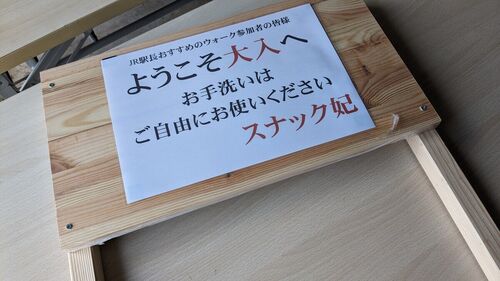 JR駅長おすすめのウォーク参加者の皆様
ようこそ大入へ
お手洗いは
ご自由にお使いください
スナック妃